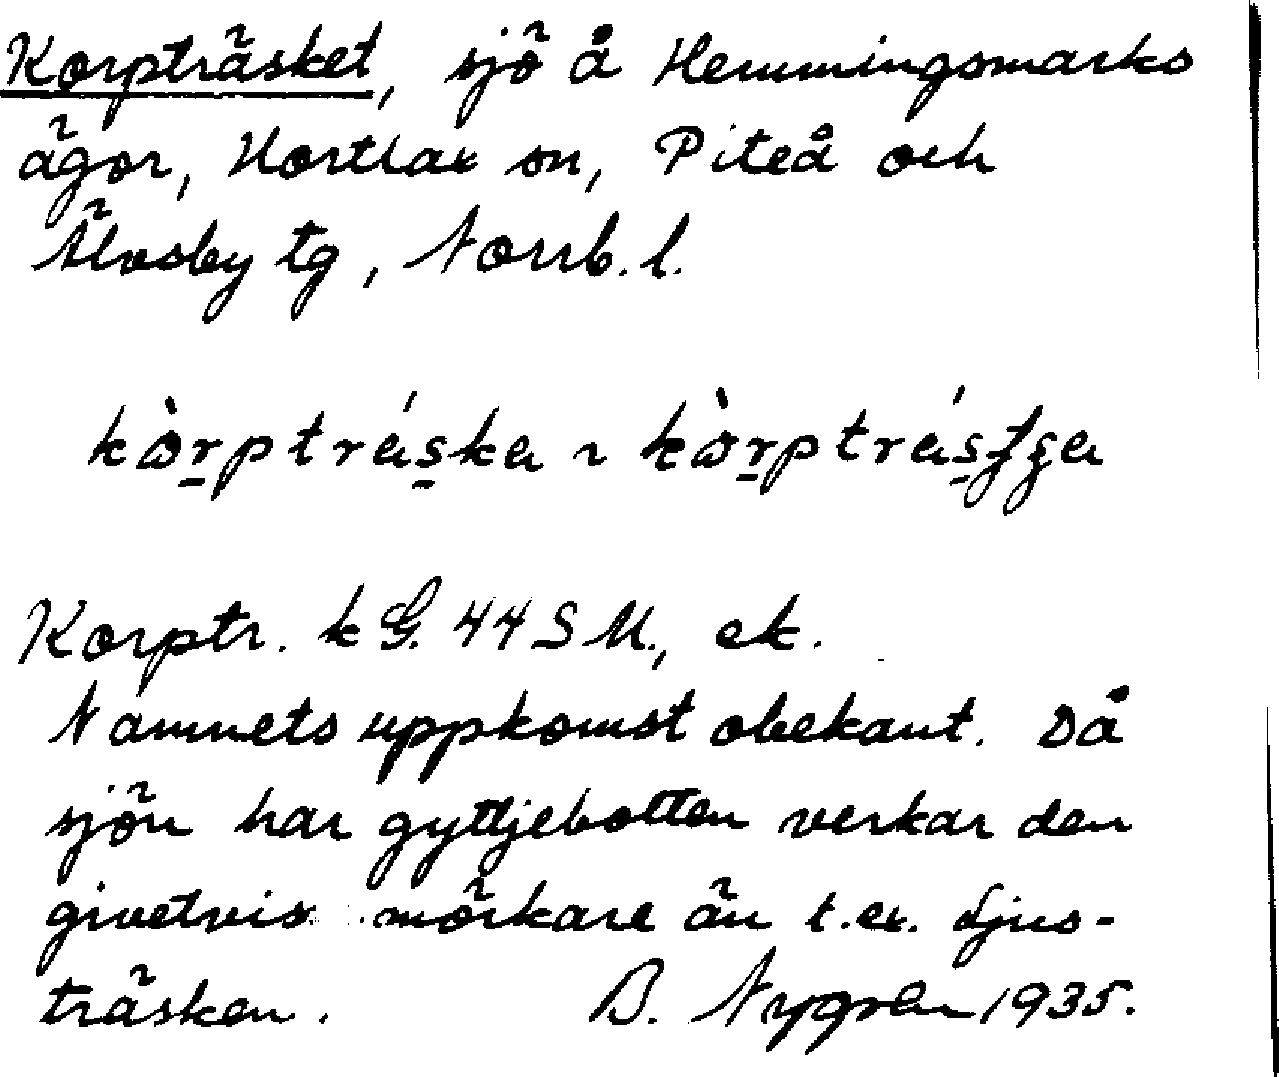 Korpträsket, sjö å Hemmingsmarks
ägor, Hortlax sn, Piteå och
Älvsby tg, Norrb. l.
kòrptréska ~ kòrptrésʃʒa
Korptr. k G. 44 S M., ek.
Namnets uppkomst obekant. Då
sjön har gyttjebotten verkar den
givetvis mörkare än t.ex. Ljus-
träsken. B. Nygren 1935.